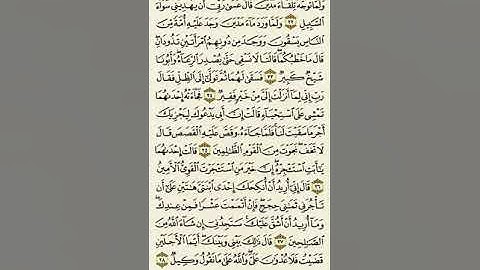 وَلَمَّا تَوَجَّهَ تِلْقَاءَ مَدْيَنَ قَالَ عَسَىٰ رَبِّي أَن يَهْدِيَنِي سَوَاءَ
السَّبِيلِ ٢٢ وَلَمَّا وَرَدَ مَاءَ مَدْيَنَ وَجَدَ عَلَيْهِ أُمَّةً مِّنَ
النَّاسِ يَسْقُونَ وَوَجَدَ مِن دُونِهِمُ امْرَأَتَيْنِ تَذُودَانِ
قَالَ مَا خَطْبُكُمَا قَالَتَا لَا نَسْقِي حَتَّىٰ يُصْدِرَ الرِّعَاءُ وَأَبُونَا
شَيْخٌ كَبِيرٌ ٢٣ فَسَقَىٰ لَهُمَا ثُمَّ تَوَلَّىٰ إِلَى الظِّلِّ فَقَالَ
رَبِّ إِنِّي لِمَا أَنزَلْتَ إِلَيَّ مِنْ خَيْرٍ فَقِيرٌ ٢٤ فَجَاءَتْهُ إِحْدَاهُمَا
تَمْشِي عَلَى اسْتِحْيَاءٍ قَالَتْ إِنَّ أَبِي يَدْعُوكَ لِيَجْزِيَكَ
أَجْرَ مَا سَقَيْتَ لَنَا فَلَمَّا جَاءَهُ وَقَصَّ عَلَيْهِ الْقَصَصَ قَالَ
لَا تَخَفْ نَجَوْتَ مِنَ الْقَوْمِ الظَّالِمِينَ ٢٥ قَالَتْ إِحْدَاهُمَا
يَا أَبَتِ اسْتَأْجِرْهُ إِنَّ خَيْرَ مَنِ اسْتَأْجَرْتَ الْقَوِيُّ الْأَمِينُ
٢٦ قَالَ إِنِّي أُرِيدُ أَنْ أُنكِحَكَ إِحْدَى ابْنَتَيَّ هَاتَيْنِ عَلَىٰ أَن
تَأْجُرَنِي ثَمَانِيَ حِجَجٍ فَإِنْ أَتْمَمْتَ عَشْرًا فَمِنْ عِندِكَ
وَمَا أُرِيدُ أَنْ أَشُقَّ عَلَيْكَ سَتَجِدُنِي إِن شَاءَ اللَّهُ مِنَ
الصَّالِحِينَ ٢٧ قَالَ ذَٰلِكَ بَيْنِي وَبَيْنَكَ أَيَّمَا الْأَجَلَيْنِ
قَضَيْتُ فَلَا عُدْوَانَ عَلَيَّ وَاللَّهُ عَلَىٰ مَا نَقُولُ وَكِيلٌ ٢٨